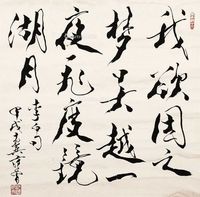 我欲因之
梦吴越一
夜飞度镜
湖月
李白句
甲戌